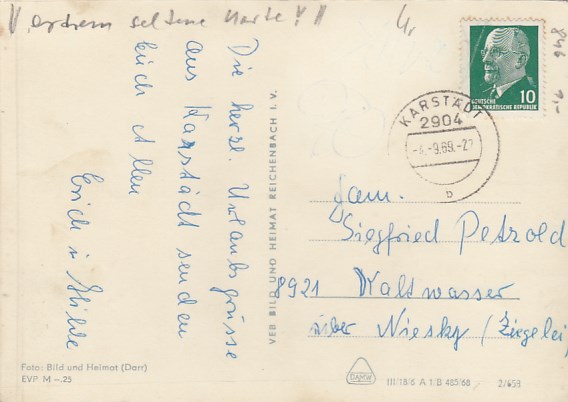 extrem seltene Karte!!!
4,
846 9,-
Die herzl. Urlaubsgrüsse
aus Karstädt senden
Euch allen
Erich u. Hilde
VEB BILD UND HEIMAT REICHENBACH I. V.
DEUTSCHE
DEMOKRATISCHE REPUBLIK
10
KARSTÄDT
2904
-9.69.-
b
Fam.
Siegfried Petzold
8921 Kaltwasser
über Niesky (Ziegelei)
Foto: Bild und Heimat (Darr)
EVP M -.25
DAMW
III/18/6 A 1/B 485/68